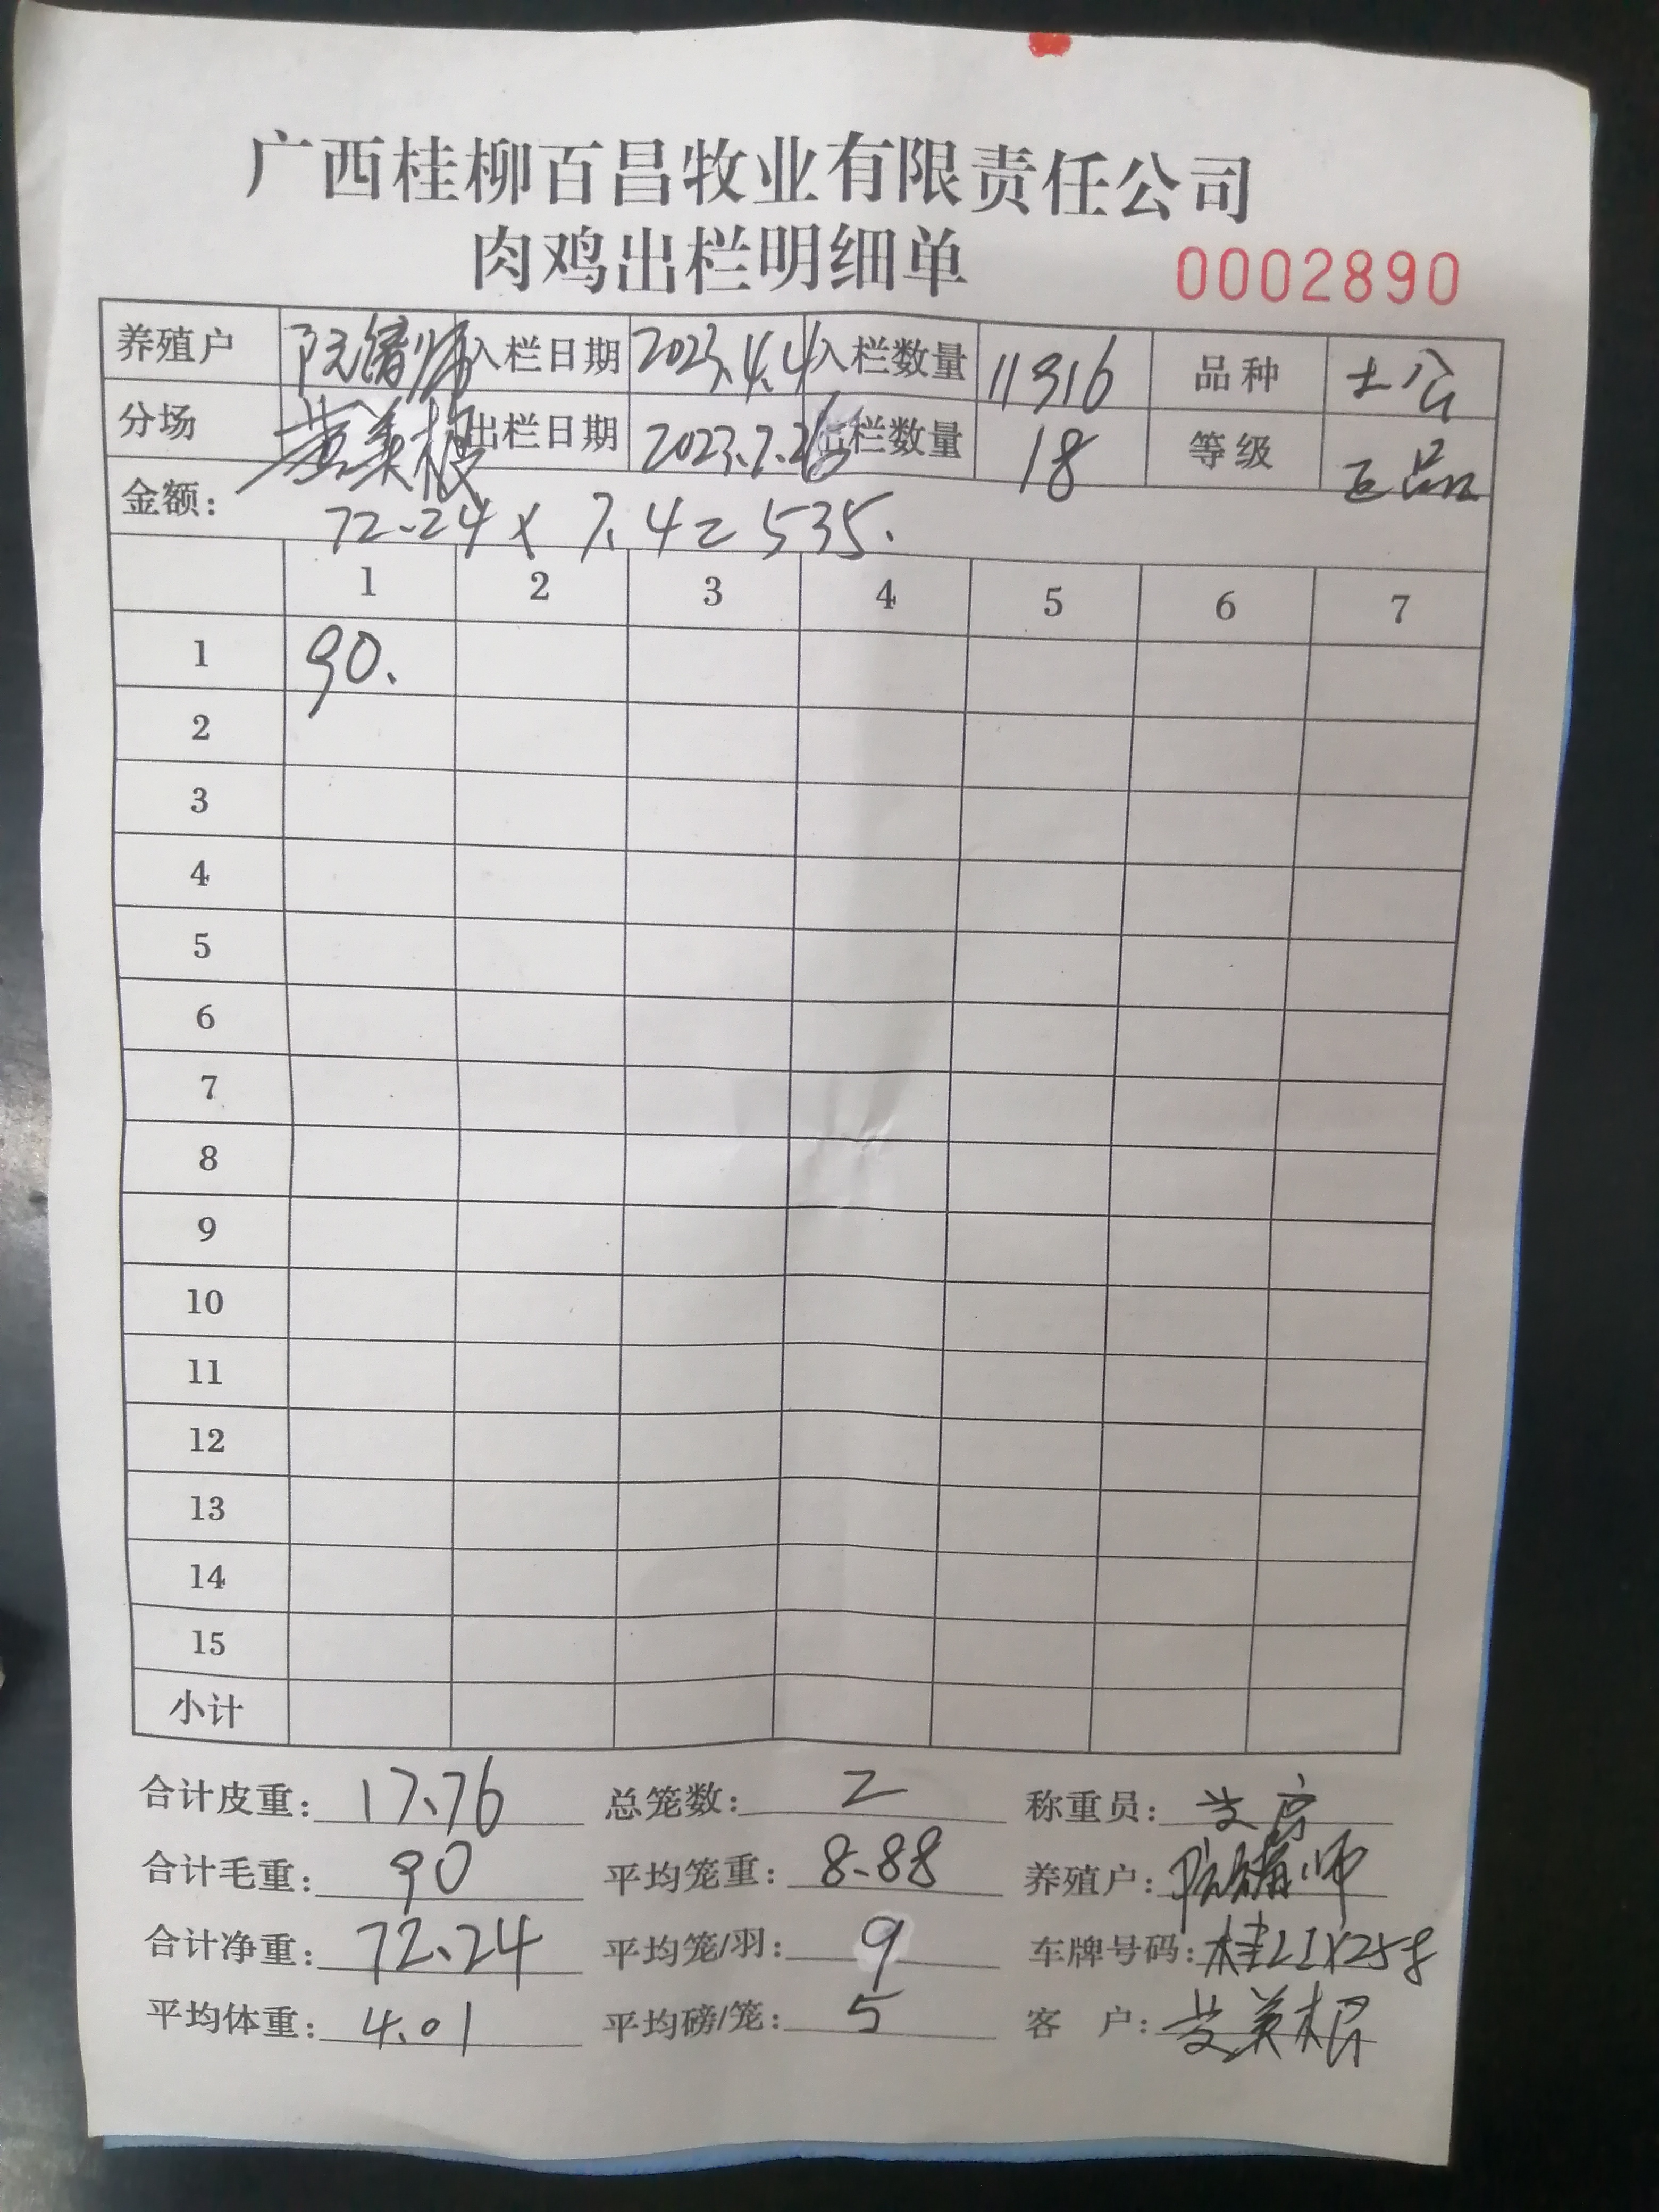 广西桂柳百昌牧业有限责任公司
肉鸡出栏明细单 0002890
养殖户 入栏日期 2023.4.4 入栏数量 11316 品种 土公
分场 黄美根 出栏日期 2023.7.26 出栏数量 18 等级 正品
金额: 72.24 x 7.4=535.
1 2 3 4 5 6 7
1 90.
2
3
4
5
6
7
8
9
10
11
12
13
14
15
小计
合计皮重: 17.76 总笼数: 2 称重员:
合计毛重: 90 平均笼重: 8.88 养殖户:
合计净重: 72.24 平均笼/羽: 9 车牌号码:
平均体重: 4.01 平均磅/笼: 5 客户: 黄美根